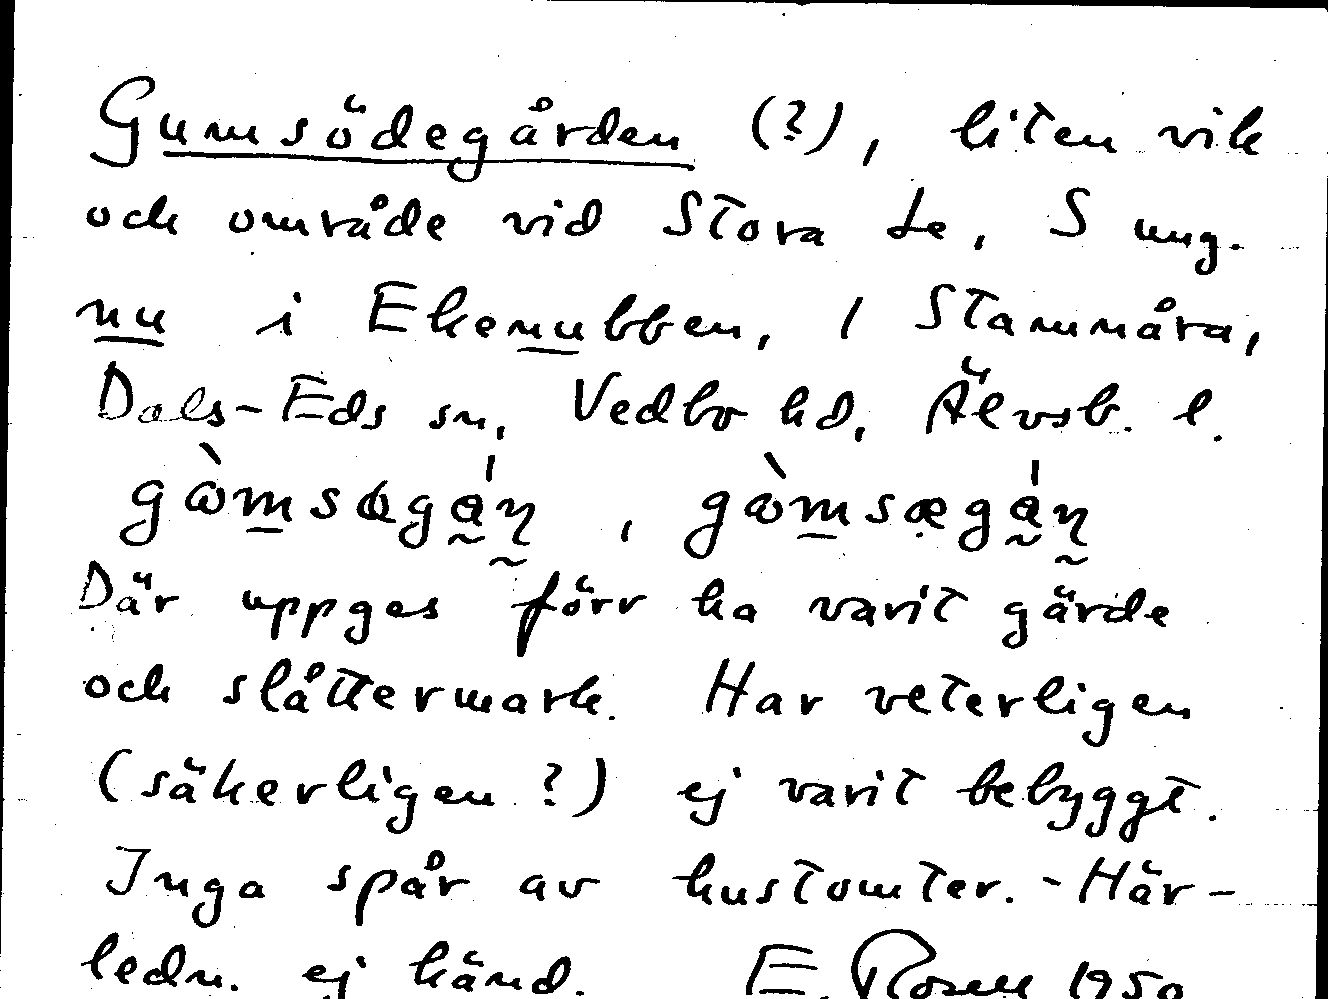 Gumsödegården (?), liten vik
och område vid Stora Le, S ung.
nu i Ekenubben, 1 Stommåra,
Dals-Eds sn, Vedbo hd, Älvsb. l.
Där uppges förr ha varit gärde
och slåttermark. Har veterligen
(säkerligen?) ej varit bebyggt.
Inga spår av hustomter. - Här-
ledn. ej känd. E. Rosell 1950